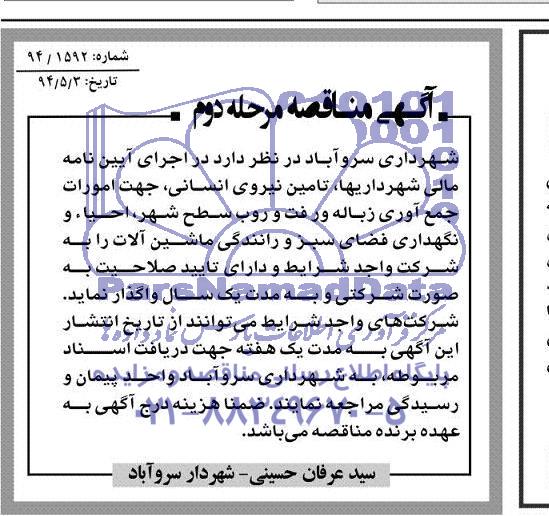 شماره: ۹۴/۱۵۹۲
تاریخ: ۹۴/۵/۳
آگهی مناقصه مرحله دوم
شهرداری سروآباد در نظر دارد در اجرای آیین نامه
مالی شهرداریها، تامین نیروی انسانی، جهت امورات
جمع آوری زباله و رفت و روب سطح شهر، احیاء و
نگهداری فضای سبز و رانندگی ماشین آلات را به
شرکت واجد شرایط و دارای تایید صلاحیت به
صورت شرکتی و به مدت یک سال واگذار نماید.
شرکت‌های واجد شرایط می‌توانند از تاریخ انتشار
این آگهی به مدت یک هفته جهت دریافت اسناد
مربوطه، به شهرداری سروآباد واحد پیمان و
رسیدگی مراجعه نمایند. ضمنا هزینه درج آگهی به
عهده برنده مناقصه می‌باشد.
سید عرفان حسینی- شهردار سروآباد
ParsNamadData
پایگاه اطلاع رسانی مناقصه و مزایده
۰۲۱-۸۸۳۴۹۶۷۰-۵